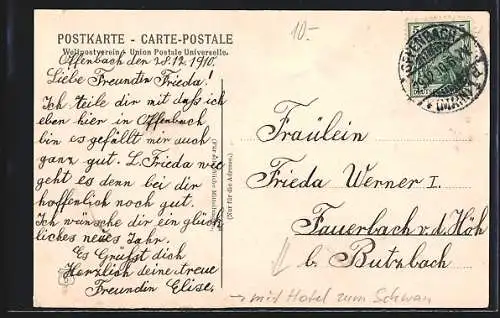 10.-
POSTKARTE - CARTE-POSTALE
Weltpostverein - Union Postale Universelle.
Offenbach den 28.12.1910.
Liebe Freundin Frieda!
Ich teile dir mit daß ich
eben hier in Offenbach
bin es gefällt mir auch
ganz gut. L. Frieda wie
geht es denn bei dir
hoffenlich noch gut.
Ich wünsche dir ein glück
liches neues Jahr.
Es Grüßt dich
Herzlich deine treue
Freundin Elise.
(Nur für die Adresse.)
OFFENBACH
(MAIN)
5
Fräulein
Frieda Werner I.
Fauerbach v. d. Höh
b. Butzbach
→ mit Hotel zum Schwan